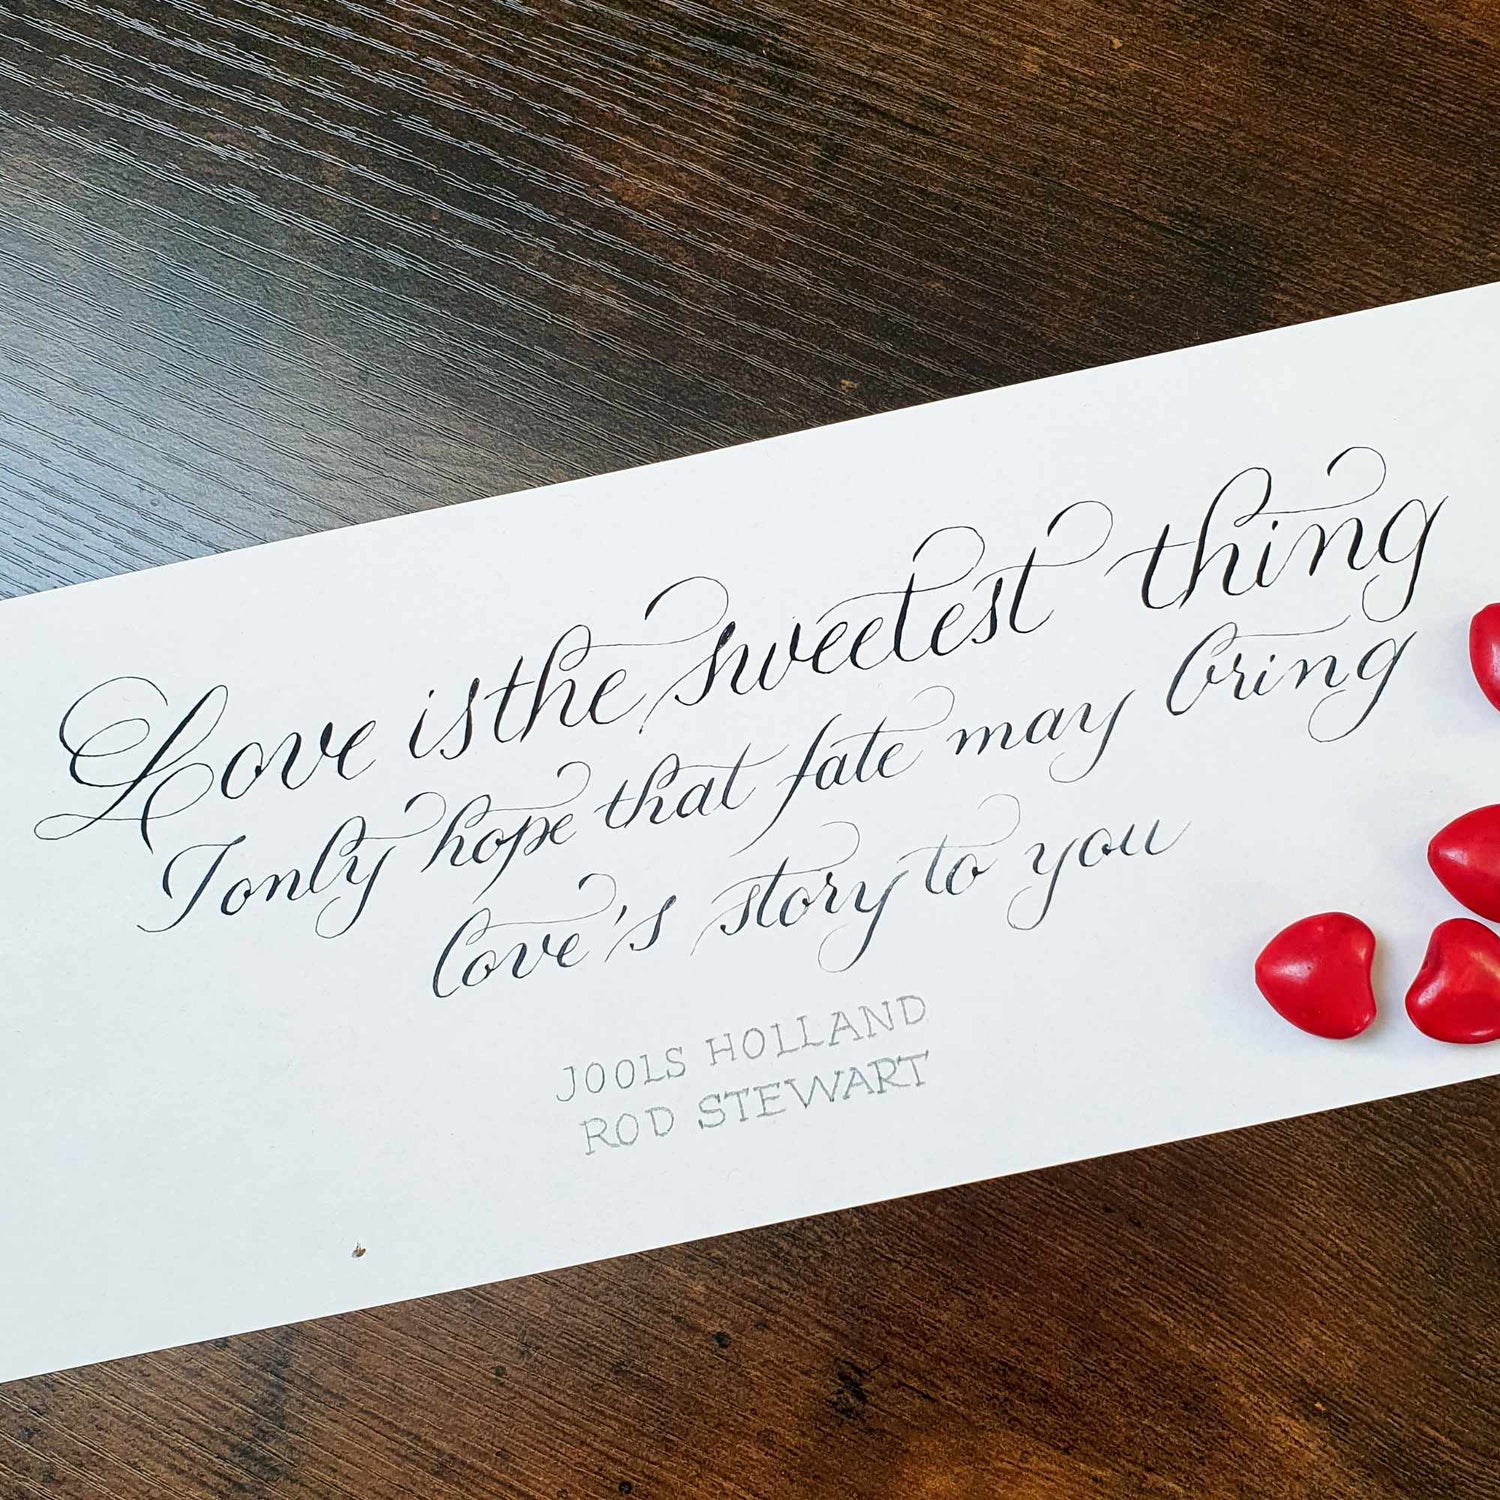 Love is the sweetest thing
I only hope that fate may bring
love's story to you
JOOLS HOLLAND
ROD STEWART